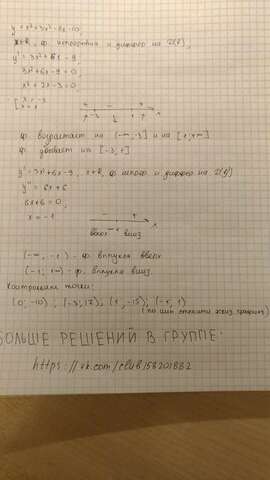 y = x³+3x²-9x-10
x∈R, ф. непрерывна и дифф. на D(f),
y' = 3x²+6x-9;
3x²+6x-9=0;
x²+2x-3=0;
x = -3
x = 1
+ - +
-3 1 x
ф. возрастает на (-∞;-3] и на [1;+∞)
ф. убывает на [-3;1]
y'=3x²+6x-9, x∈R, ф. непр. и дифф. на D(f)
y'' = 6x+6
6x+6=0;
x = -1
- + x
вверх -1 вниз
(-∞; -1) - ф. выпукла вверх
(-1; +∞) - ф. выпукла вниз.
Контрольн. точки:
(0; -10), (-3; 17), (1; -15); (-1; 1)
(по ним строите эскиз графика)
БОЛЬШЕ РЕШЕНИЙ В ГРУППЕ:
https://vk.com/club158201882